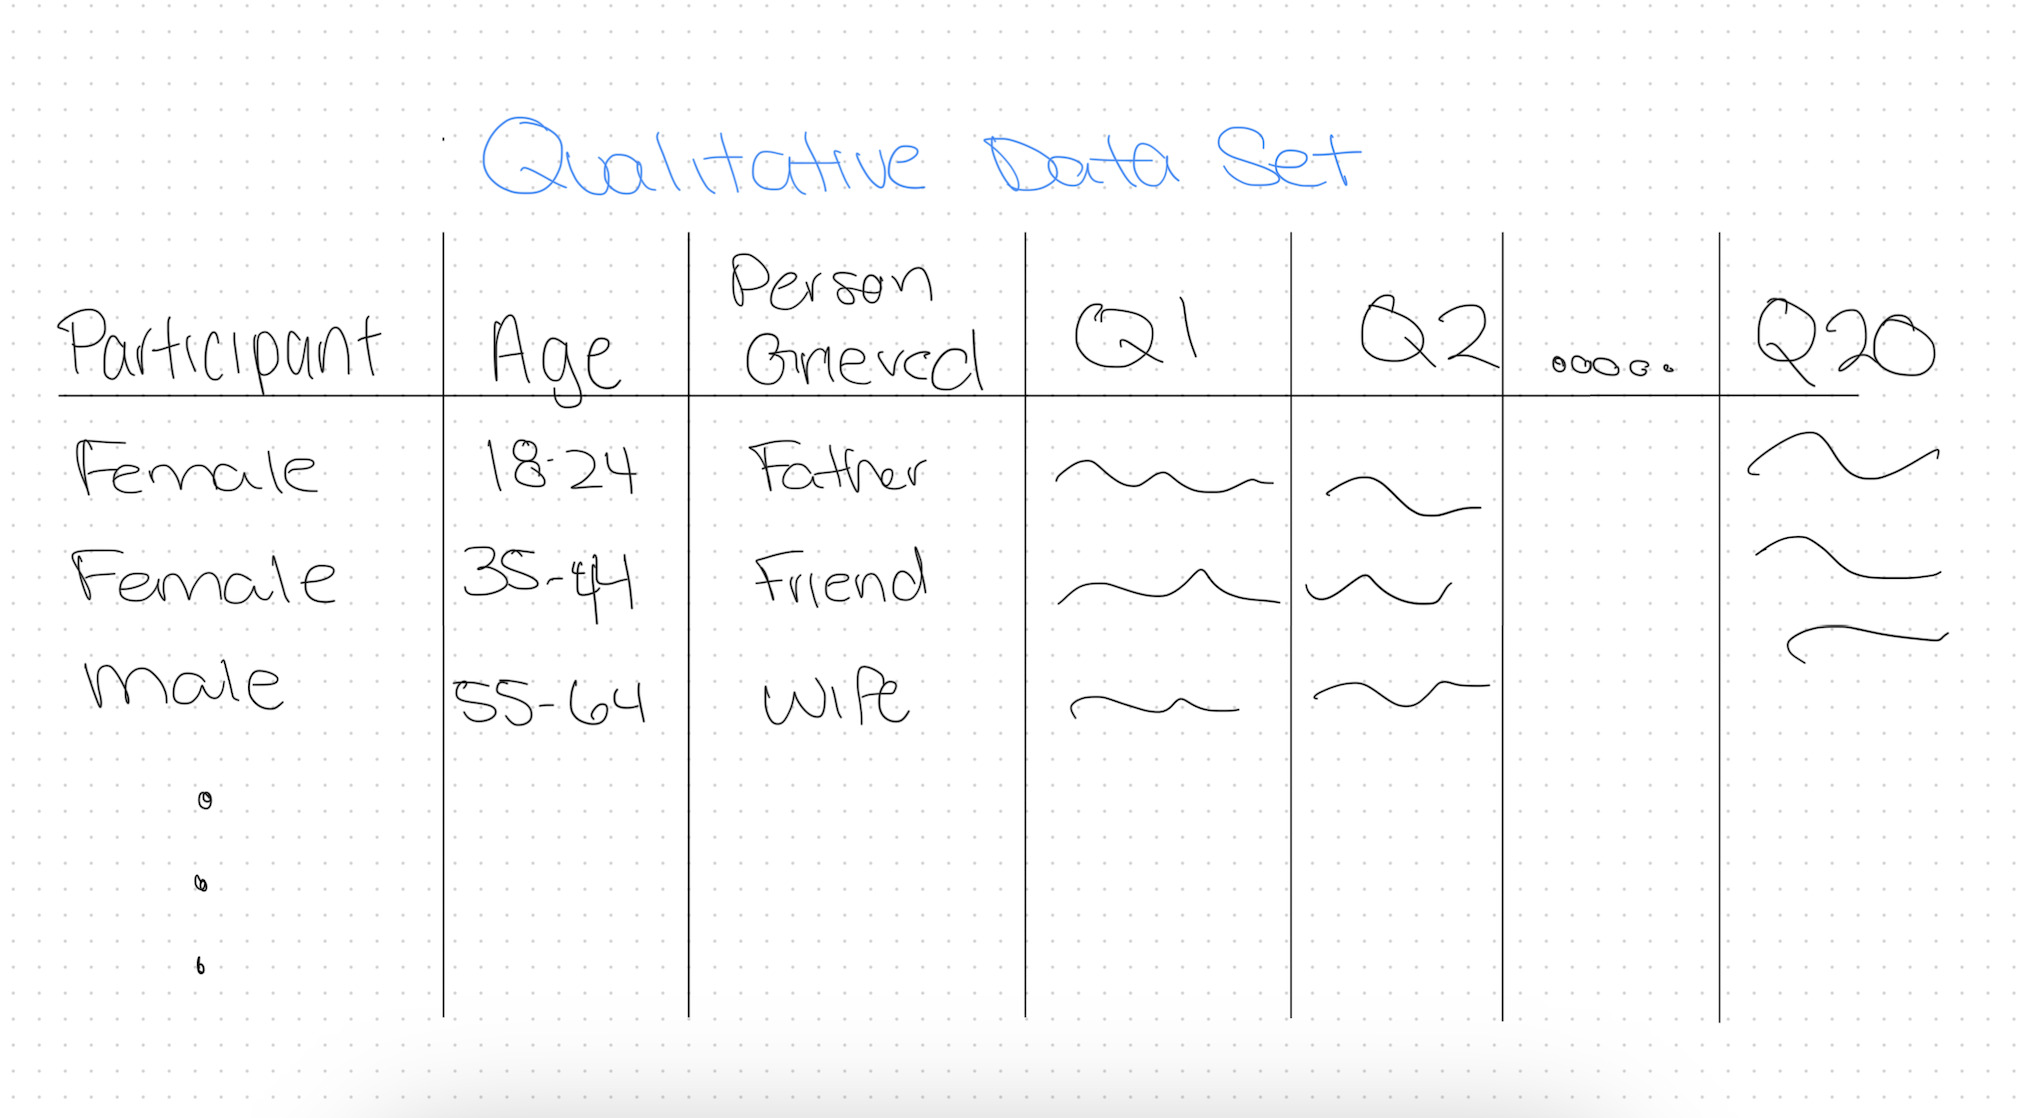 Qualitative Data Set
Participant Age Person Grieved Q1 Q2 ..... Q20
Female 18-24 Father
Female 35-44 Friend
Male 55-64 Wife